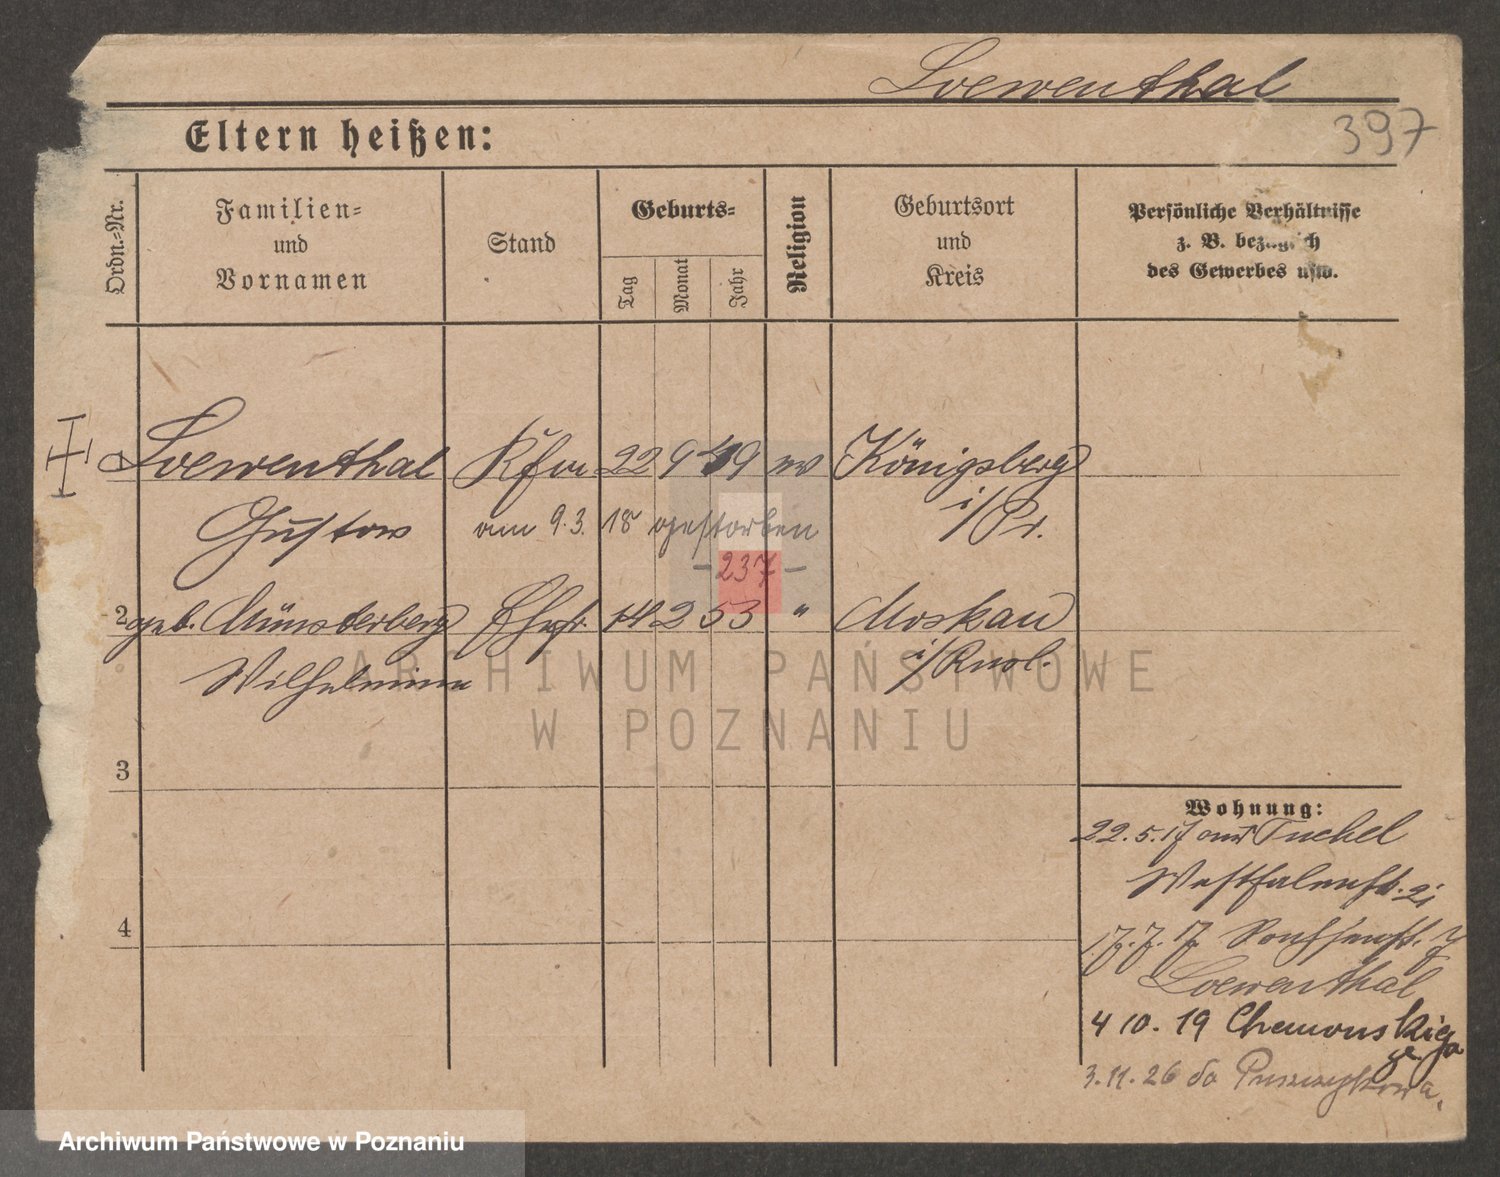 Loewenthal
397
Eltern heißen:
Ordn.-Nr.
Familien-
und
Vornamen
Stand
Geburts-
Tag
Monat
Jahr
Religion
Geburtsort
und
Kreis
Persönliche Verhältnisse
z. B. bezüglich
des Gewerbes usw.
Loewenthal Kfm 22 9 49 Königsberg
Gustav am 9.3. 18 gestorben i/Pr.
- 237 -
2 geb. Münsterberg Ehefr. 14 2 53 " Moskau
Wilhelmine i/Russl.
ARCHIWUM PAŃSTWOWE
W POZNANIU
3
4
Wohnung:
22.5.17 aus Tuchel
17.7.17
Loewenthal
4 10. 19
3.11.26 do Puszczykowa.
Archiwum Państwowe w Poznaniu